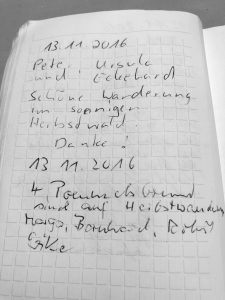 13.11.2016
Peter, Ursula
und Eckehard
Schöne Wanderung
im sonnigen
Herbstwald.
Danke!
13.11.2016
4
sind auf Herbstwanderung
Marga, Bernhard,